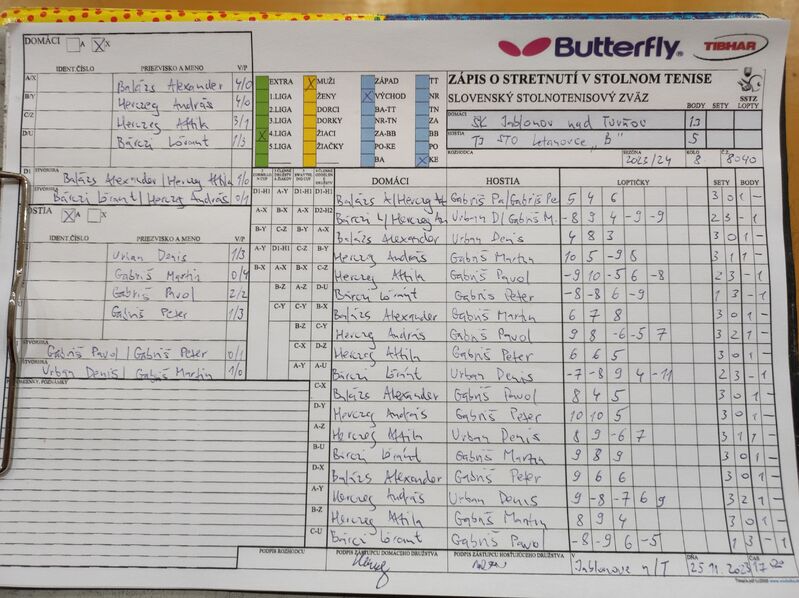 DOMÁCI A X
Butterfly
TIBHAR
IDENT.ČÍSLO PRIEZVISKO A MENO V/P
A/X Balázs Alexander 4/0
B/Y Herczeg András 4/0
C/Z Herczeg Attila 3/1
D/U Bárczi Lóránt 1/3
ŠTVORHRA
D1 Balázs Alexander / Herczeg Attila 1/0
ŠTVORHRA
Bárczi Lóránt / Herczeg András 0/1
EXTRA
1.LIGA
2.LIGA
3.LIGA
4.LIGA
5.LIGA
MUŽI
ŽENY
DORCI
DORKY
ŽIACI
ŽIAČKY
ZÁPAD
VÝCHOD
BA-TT
NR-TN
ZA-BB
PO-KE
BA
TT
NR
TN
ZA
BB
PO
KE
ZÁPIS O STRETNUTÍ V STOLNOM TENISE
SLOVENSKÝ STOLNOTENISOVÝ ZVÄZ
SSTZ
BODY SETY LOPTY
DOMÁCI ŠK Jablonov nad Turňou 13
HOSTIA TJ STO Letanovce "B" 5
ROZHODCA SEZÓNA 2023/24 KOLO 8 Č.Z. 8040
HOSTIA A X
IDENT.ČÍSLO PRIEZVISKO A MENO V/P
Urban Denis 1/3
Gabriš Martin 0/4
Gabriš Pavol 2/2
Gabriš Peter 1/3
ŠTVORHRA
Gabriš Pavol / Gabriš Peter 0/1
ŠTVORHRA
Urban Denis / Gabriš Martin 1/0
POZNÁMKY
DOMÁCI HOSTIA LOPTIČKY SETY BODY
D1-H1 A-Y D1-H1 D1-H1 Balázs A/Herczeg At Gabriš Pa/Gabriš Pe 5 4 6 3 0 1 -
A-X B-X A-X D2-H2 Bárczi L/Herczeg An Urban D/Gabriš M. -8 9 4 -9 -9 2 3 - 1
B-Y C-Z B-Y A-X Balázs Alexander Urban Denis 4 8 3 3 0 1 -
A-Y D1-H1 C-Z B-Y Herczeg András Gabriš Martin 10 5 -9 8 3 1 1 -
B-X A-X B-X C-Z Herczeg Attila Gabriš Pavol -9 10 -5 6 -8 2 3 - 1
B-Z A-Z D-U Bárczi Lóránt Gabriš Peter -8 -8 6 -9 1 3 - 1
C-Y C-Y B-X Balázs Alexander Gabriš Martin 6 7 8 3 0 1 -
B-Z C-Y Herczeg András Gabriš Pavol 9 8 -6 -5 7 3 2 1 -
C-X D-Z Herczeg Attila Gabriš Peter 6 6 5 3 0 1 -
A-Y A-U Bárczi Lóránt Urban Denis -7 -8 9 4 -11 2 3 - 1
C-X Balázs Alexander Gabriš Pavol 8 4 5 3 0 1 -
D-Y Herczeg András Gabriš Peter 10 10 5 3 0 1 -
A-Z Herczeg Attila Urban Denis 8 9 -6 7 3 1 1 -
B-U Bárczi Lóránt Gabriš Martin 9 8 9 3 0 1 -
D-X Balázs Alexander Gabriš Peter 9 6 6 3 0 1 -
A-Y Herczeg András Urban Denis 9 -8 -7 6 9 3 2 1 -
B-Z Herczeg Attila Gabriš Martin 8 9 4 3 0 1 -
C-U Bárczi Lóránt Gabriš Pavol -8 -9 6 -5 1 3 - 1
PODPIS ROZHODCU PODPIS ZÁSTUPCU DOMÁCEHO DRUŽSTVA PODPIS ZÁSTUPCU HOSŤUJÚCEHO DRUŽSTVA V Jablonove n/T DŇA 25.11.2023 ČAS 17 00